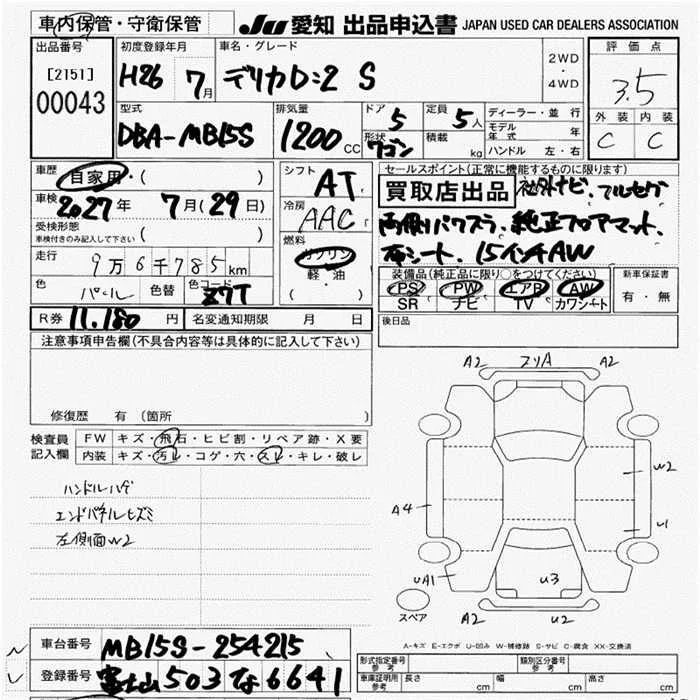 車内保管・守衛保管
JU 愛知 出品申込書 JAPAN USED CAR DEALERS ASSOCIATION
出品番号
[2151]
00043
初度登録年月
H26 7月
車名・グレード
デリカD:2 S
2WD
・
4WD
評価点
3.5
外装 内装
C C
型式
DBA-MB15S
排気量
1200CC
ドア 5
形状 ワゴン
定員 5人
積載 kg
ディーラー・並行
モデル年式 年
ハンドル 左・右
車歴
自家用・( )
車検
2027年 7月(29日)
受検形態
車検付きのみ記入して下さい ( )
走行
9万6千785km
色 パール 色替 色コード Z7T
シフト AT
冷房 AAC
燃料
ガソリン
軽・油
( )
セールスポイント(正常に機能するものに限ります)
買取店出品 社外ナビ、フルセグ
両側パワスラ、純正フロアマット、
布シート、15インチAW
装備品(純正品に限り○をつけてください)
PS PW エアB AW
SR ナビ TV カワシート
新車保証書
有・無
R券 11,180円 名変通知期限 月 日
後日品
注意事項申告欄(不具合内容等は具体的に記入して下さい)
修復歴 有(箇所
検査員
記入欄
FW キズ・飛石・ヒビ割・リペア跡・X要
内装 キズ・汚レ・コゲ・穴・スレ・キレ・破レ
ハンドルハゲ
エンドパネルヒズミ
左側面W2
A2 スリA A2
W2
A4
U1
UA1
U3
スペア
A2 U2
A-キズ E-エクボ U-凹み W-補修跡 S-サビ C-腐食 XX-交換済
車台番号 MB15S-254215
登録番号 富士山 503 な 6641
形式指定番号 参考
類別区分番号 参考
車庫証明用 参考
長さ cm 幅 cm 高さ cm